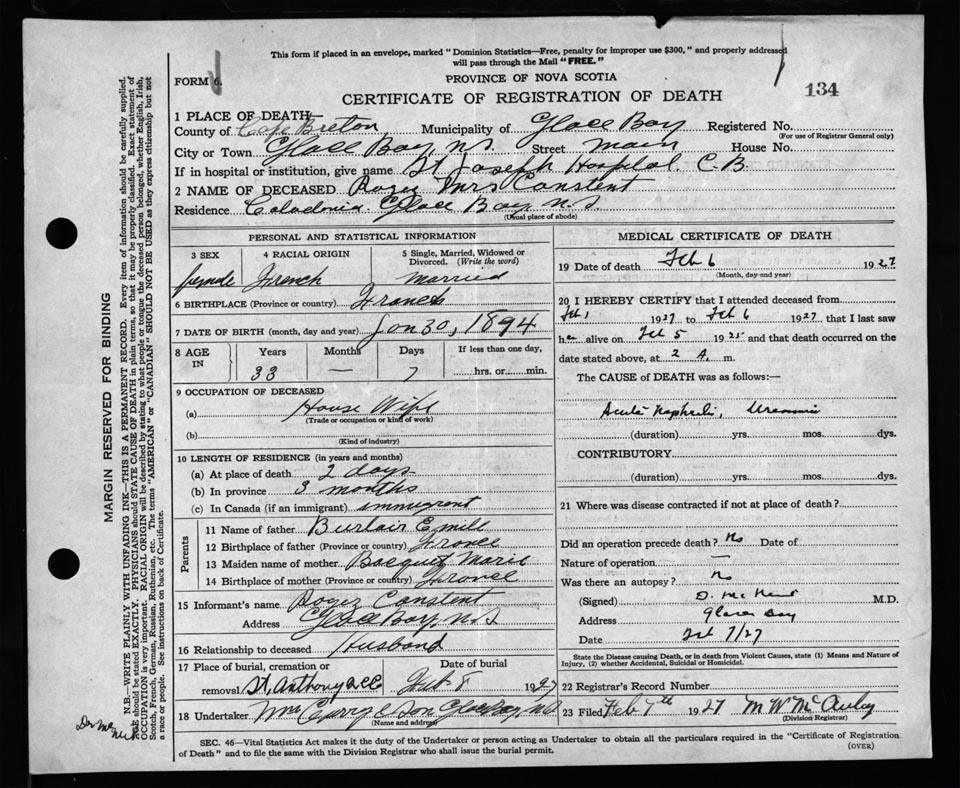 This form if placed in an envelope, marked "Dominion Statistics—Free, penalty for improper use $300," and properly addressed
will pass through the Mail "FREE."
FORM 6.
PROVINCE OF NOVA SCOTIA
134
CERTIFICATE OF REGISTRATION OF DEATH
1 PLACE OF DEATH
County of Cape Breton, Municipality of Glace Bay Registered No.
(For use of Registrar General only)
City or Town Glace Bay, N.S. Street Main House No.
If in hospital or institution, give name St Joseph Hospital. C.B
2 NAME OF DECEASED Roger Mrs Constent
Residence Caledonia. Glace Bay N.S
(Usual place of abode)
PERSONAL AND STATISTICAL INFORMATION
3 SEX 4 RACIAL ORIGIN 5 Single, Married, Widowed or
Divorced. (Write the word)
female French Married
6 BIRTHPLACE (Province or country) France
7 DATE OF BIRTH (month, day and year) Jan 30, 1894
8 AGE IN Years Months Days If less than one day,
33 — 7 hrs. or min.
9 OCCUPATION OF DECEASED
(a) House Wife
(Trade or occupation or kind of work)
(b)
(Kind of industry)
10 LENGTH OF RESIDENCE (in years and months)
(a) At place of death 2 days
(b) In province 3 months
(c) In Canada (if an immigrant) immigrant
Parents
11 Name of father Burlair Emill
12 Birthplace of father (Province or country) France
13 Maiden name of mother Bacquet Marie
14 Birthplace of mother (Province or country) France
15 Informant's name Roger Constent
Address Glace Bay, N.S
16 Relationship to deceased Husband
17 Place of burial, cremation or Date of burial
removal St, Anthony 8 1927
18 Undertaker Wm Son Glace Bay N.S
(Name and address)
MEDICAL CERTIFICATE OF DEATH
19 Date of death Feb 6 1927
(Month, day and year)
20 I HEREBY CERTIFY that I attended deceased from
Feb 1 1927 to Feb 6 1927 that I last saw
her alive on Feb 5 1925 and that death occurred on the
date stated above, at 2 A. m.
The CAUSE of DEATH was as follows:—
Acute Nephritis, Uraemia
(duration) yrs. mos. dys.
CONTRIBUTORY
(duration) yrs. mos. dys.
21 Where was disease contracted if not at place of death?
Did an operation precede death? No Date of
Nature of operation —
Was there an autopsy? no
(Signed) M.D.
Address Glace Bay
Date Feb 7/27
State the Disease causing Death, or in death from Violent Causes, state (1) Means and Nature of
Injury, (2) whether Accidental, Suicidal or Homicidal.
22 Registrar's Record Number
23 Filed Feb 7th 1927 M W McAulay
(Division Registrar)
SEC. 46—Vital Statistics Act makes it the duty of the Undertaker or person acting as Undertaker to obtain all the particulars required in the "Certificate of Registration
of Death" and to file the same with the Division Registrar who shall issue the burial permit.
(OVER)
MARGIN RESERVED FOR BINDING
N.B.—WRITE PLAINLY WITH UNFADING INK—THIS IS A PERMANENT RECORD. Every item of information should be carefully supplied.
AGE should be stated EXACTLY. PHYSICIANS should STATE CAUSE OF DEATH in plain terms, so that it may be properly classified. Exact statement of
OCCUPATION is very important. RACIAL ORIGIN will be described by stating to what people or tongue the deceased person belonged, whether English, Irish,
Scotch, French, German, Russian, Ruthenian, etc. The terms "AMERICAN" or "CANADIAN" SHOULD NOT BE USED as they express citizenship but not
a race or people. See instructions on back of Certificate.